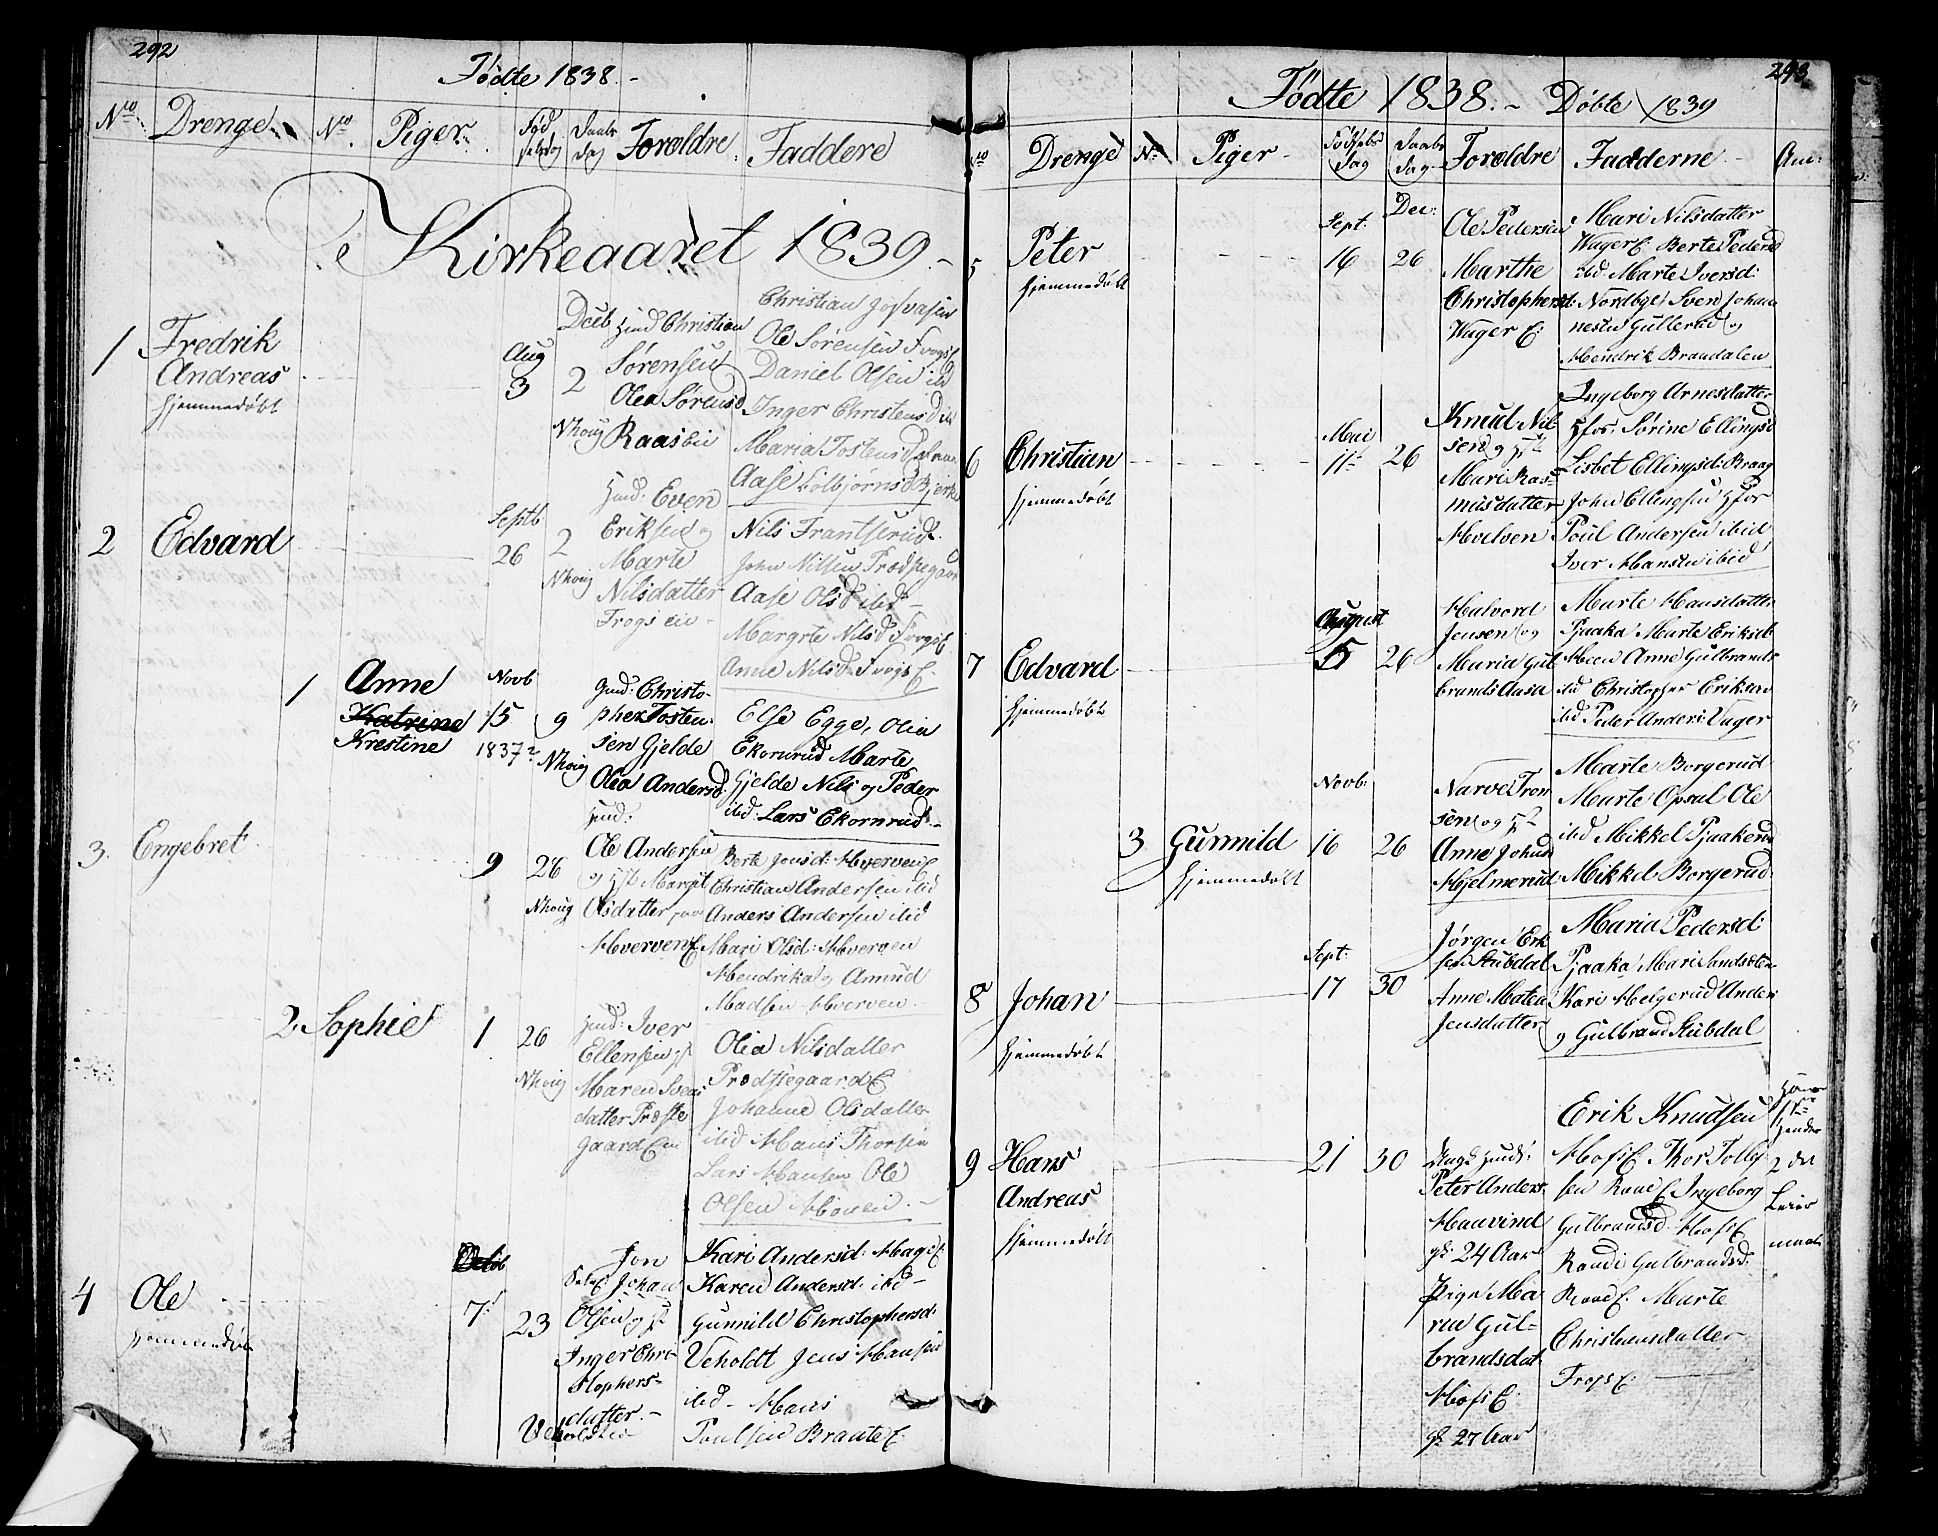 292
Födte 1838.-
No. Drenge No. Piger. Fødselsdag Daabsdag Forældre Faddere
i Kirkeaaret 1839.-
1 Fredrik
Andreas
hjemmedøbt
Aug
3
Decb
2
Nhoug
Huusmd Christian
Sørensen
Olea Sørensd
Raasbei
Christian
Ole Sørensen
Daniel Olsen ibd
Inger Christensd
Maria Tostensd
Aase
2 Edvard
Septb
26
2
Nhoug
Huusmd: Even
Eriksen og
Marte
Nilsdatter
Frogs eie -
Nils Frantserud
John Nilsen Prædstegaard
Aase Olsd ibd -
Margrte Nilsd Frogs E
Anne Nilsd Frogs E.
1 Anne
Katrine
Krestine
Novb
15
1837
9
Nhoug
Gmd: Christo-
pher Tosten:
sen Gjelde
Olea Andersd
Else Egge, Olia
Ekornrud Marte
Gjelde Nils og Peder
ibd: Lars Ekornrud.-
3. Engebret
9
26
Nhoug
Huusmd:
Ole Andersen
og Hst Margit
Olsdatter
Hverven E
Berte Jonsd: Hverven E
Christian Andersen ibid
Anders Andersen ibid
Mari Olsd: Hverven
Hendrika og Amund
Madsen Hverven.
2. Sophie
1
26
Nhoug
Huusmd: Iver
Ellensen
Maren Svens
datter Præste
gaard Eie
Olia Nilsdatter
Prædstegaard E
Johanne Olsdatter
ibid Hans Thorsen
Lars Hansen Ole
Olsen Moen. -
4 Ole
hjemmedøbt
7
23
Jon
Johan
Olsen og Hst
Inger Chri-
stophers-
datter. -
Veholdt eie
Kari Andersd: Hage E
Karen Andersd ibid -
Gunnild Christophersd
Veholdt Jens Hansen
ibid - Hans
Poulsen Braate E.
293.
Födte 1838. - Döbte 1839
No Drenge No Piger - Fødselsdag Daabsdag Forældre Fadderne - Anm:
5 Peter
hjemmedøbt
Sept.
16
Dec:
26
Ole Pedersen
Marthe
Christophersd:
Wager E:
Mari Nilsdatter
Wager E. Berte Peders
ibd: Marte Iversd:
Nordbye Sven Johan
nesen Gullerud og
Hendrik Braadalen
6 Christian
hjemmedøbt
Mai
11
26
Knud Nil-
sen og Hst
Mari Ras-
musdatter
Halsen
Ingeborg Arnesdatter
Hfos: Sørine Ellingsd
Lisbet Ellingsd: Kraag
John Ellingsen Hfos
Poul Andersen ibid
Iver Hansen ibid
7 Edvard
hjemmedøbt
August
5
26
Halvord
Jensen og
Maria Gul
brands Aasa
Marte Hansdatter
Pjaaka Marte Eriksd
Meen Anne Gulbrands
ibd Christopher Eriksen
ibd Peder Anders: Vager
3 Gunnild
hjemmedøbt
Novb:
16
26
Narve Tron
sen og Hst
Anne Johns
Hjelmerud
Marte Borgerud
Marte Opsal Ole
ibd Mikkel Pjaakerud
Mikkel Borgerud.
8 Johan
hjemmedøbt
Sept:
17
30
Jørgen Erk
sen Stubdal
Anne Matea
Jensdatter
Maria Pedersd:
Pjaaka Mari Sandsæten
Kari Helgerud Anders
og Gulbrand Stubdal
9 Hans
Andreas
hjemmedøbt
21
30
Ungk:
Peter Anders:
Hauvind
gl: 24 Aar
Pige Ma
ria Gul-
brandsdat
Hofs E:
gl: 27 Aar
Erik Knudsen
Hofs E. Thor Tollef
sen Raae E Ingeborg
Gulbrandsd. Hofs E
Randi Gulbrandsd:
Raae E. Marte
Christiansdatter
Frogs E.
Hans
1ste
Hendes
2det
Leier
maal